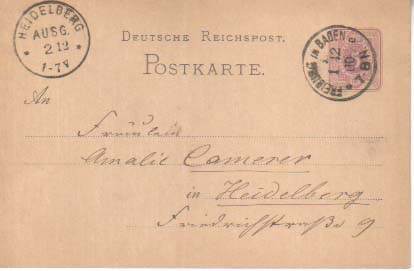 HEIDELBERG
AUSG.
2 12
1-7V
DEUTSCHE REICHSPOST.
POSTKARTE.
FREIBURG IN BADEN
1 12
7-8N
An
Fräulein
Amalie Camerer
in Heidelberg
Friedrichstraße 9